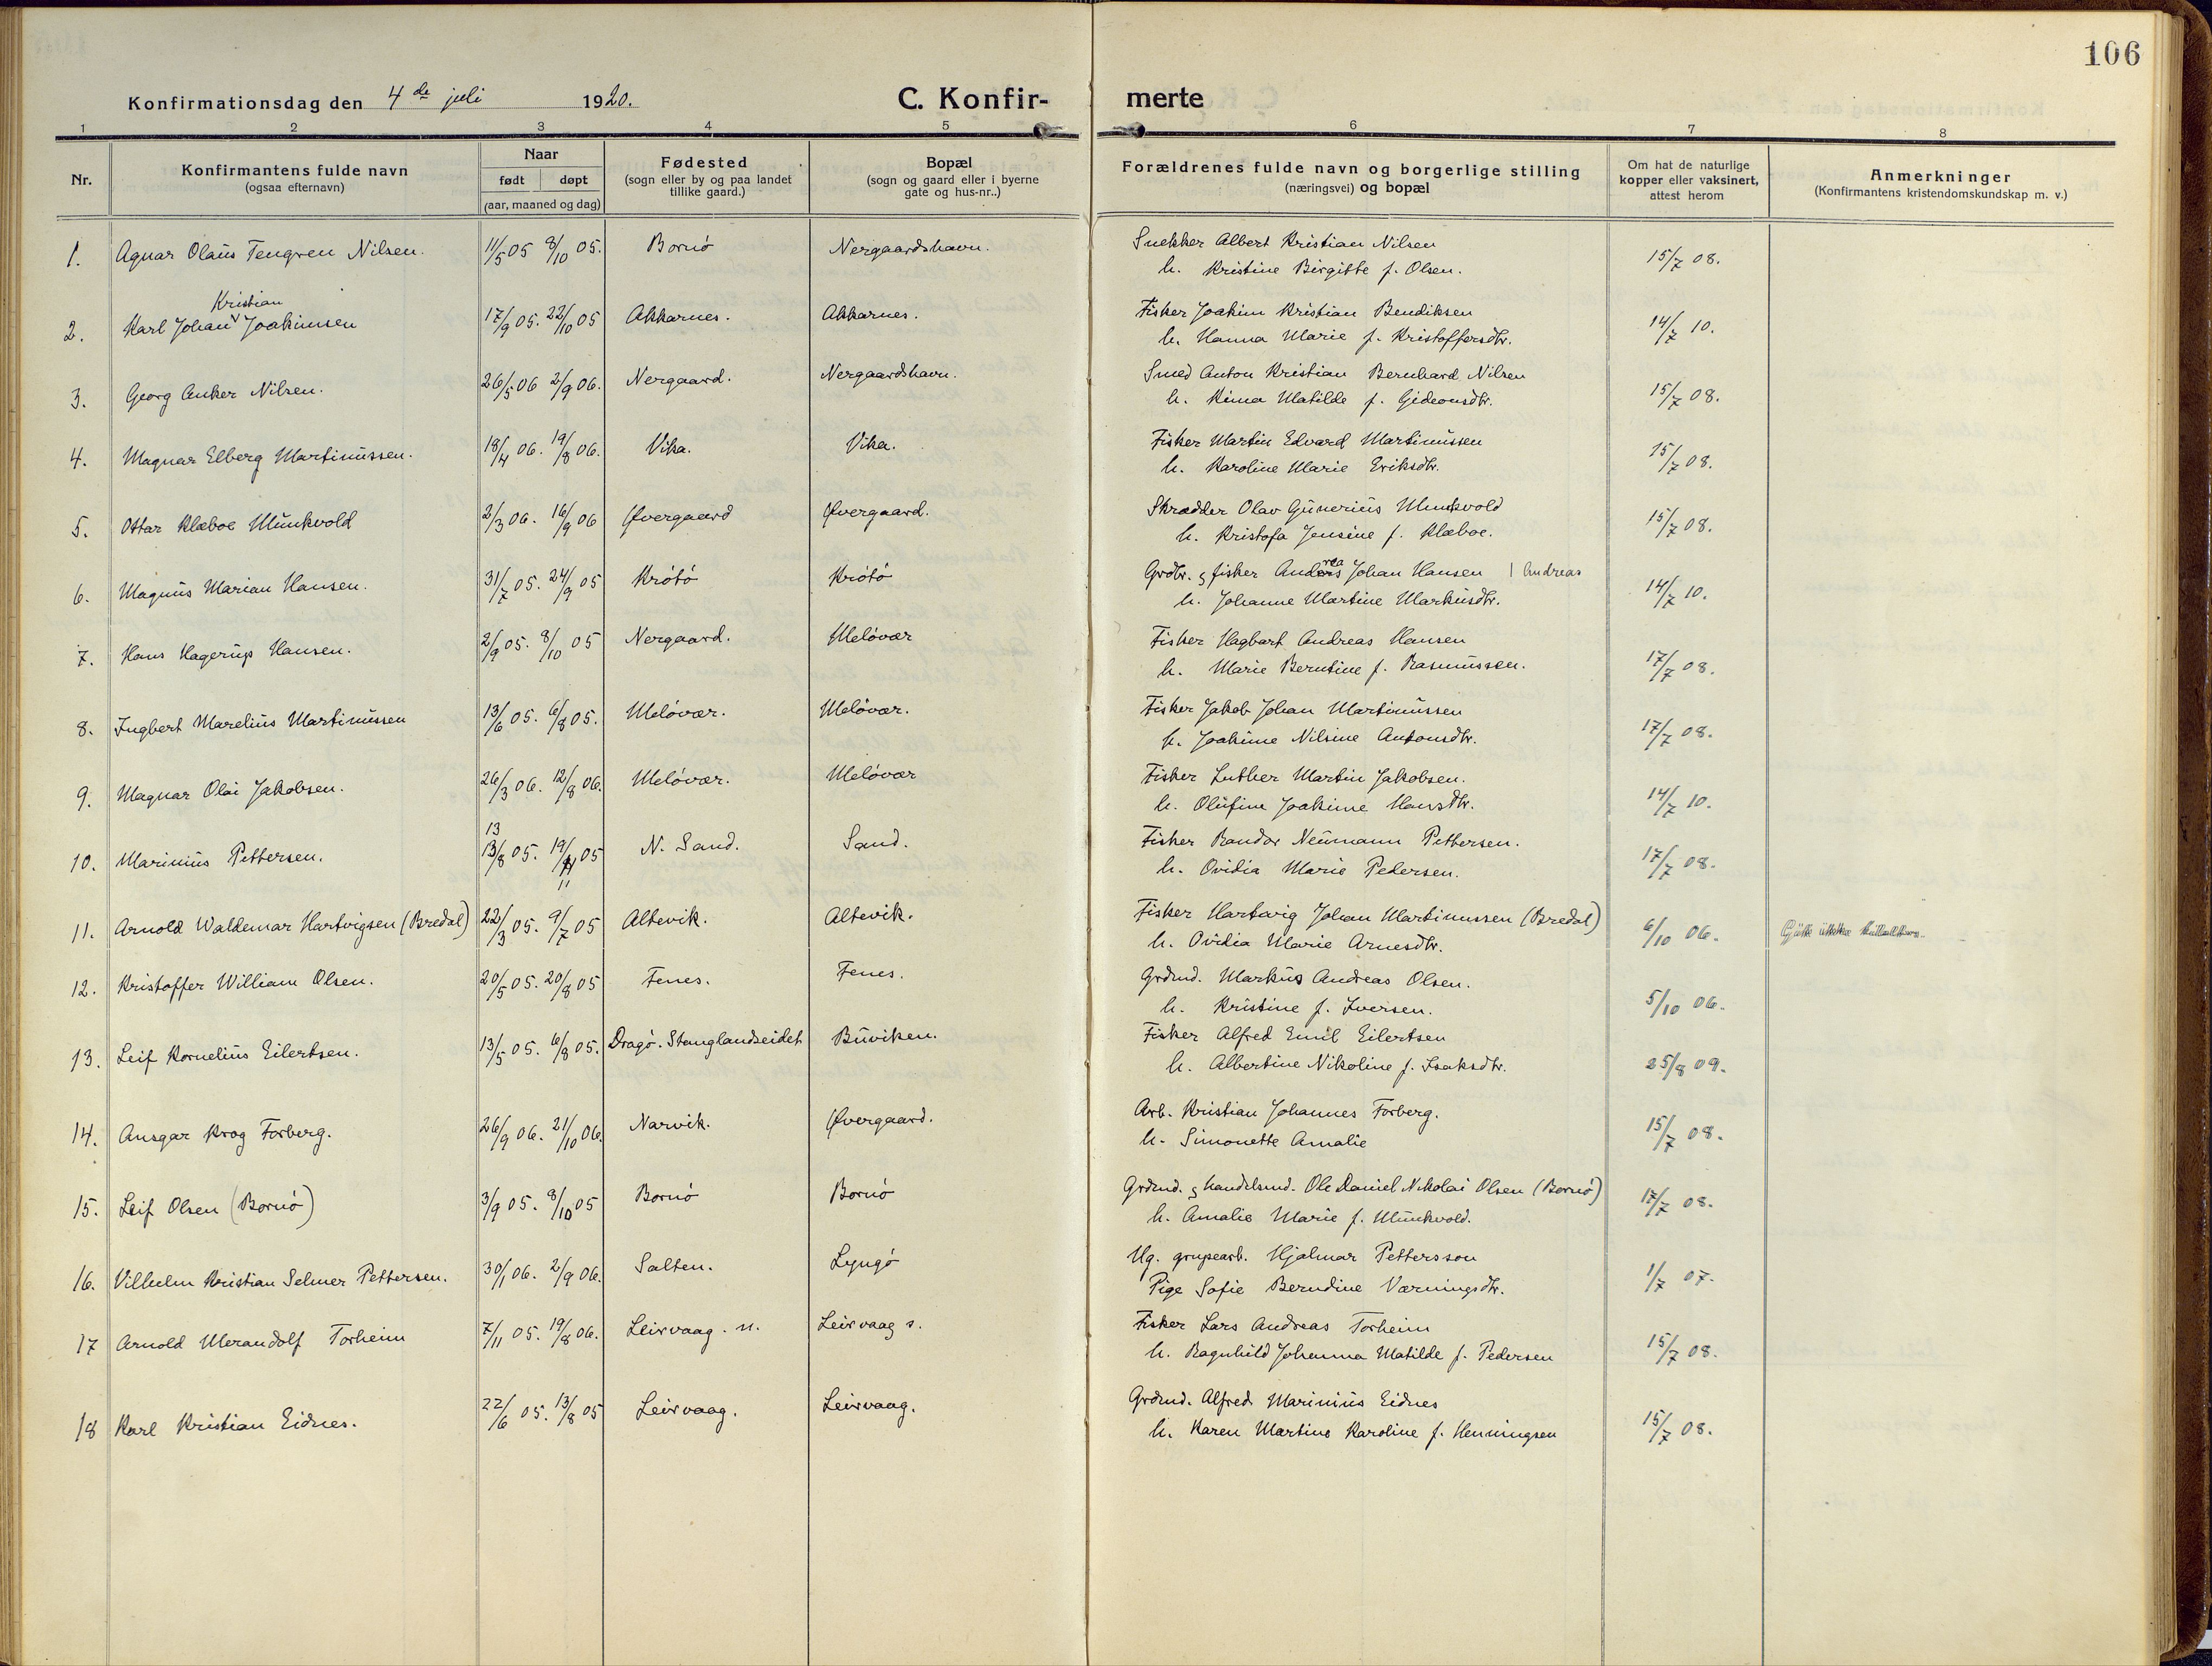 106
Konfirmationsdag den 4de juli 1920.
C. Konfirmerte
1 2 3 4 5 6 7 8
Nr.
Konfirmantens fulde navn
(ogsaa efternavn)
Naar
født døpt
(aar, maaned og dag)
Fødested
(sogn eller by og paa landet
tillike gaard.)
Bopæl
(sogn og gaard eller i byerne
gate og hus-nr..)
Forældrenes fulde navn og borgerlige stilling
(næringsvei) og bopæl
Om hat de naturlige
kopper eller vaksinert,
attest herom
Anmerkninger
(Konfirmantens kristendomskundskap m. v.)
1. Agnar Olaüs Tengren Nilsen. 11/5 05 8/10 05. Bornö Nergaardshavn. Snekker Albert Kristian Nilsen 15/7 08.
h. Kristine Birgitte f. Olsen.
Kristian
2. Karl Johan Joakimsen 17/9 05. 22/10 05 Akkarnes. Akkarnes. Fisker Joakim Kristian Bendiksen 14/7 10.
h. Hanna Marie f. Kristoffersdtr.
3. Georg Anker Nilsen. 26/5 06 2/9 06. Nergaard. Nergaardshavn. Smed Anton Kristian Bernhard Nilsen 15/7 08.
h. Kima Matilde f. Gideonsdtr.
4. Magnar Elberg Martinüssen. 18/4 06. 19/8 06. Vika. Vika. Fisker Martin Edvard Martinüssen 15/7 08.
h. Karoline Marie Eriksdtr.
5. Ottar Klæboe Münkvold 2/3 06. 16/9 06 Øvergaard Øvergaard. Skrædder Olav Günerius Munkvold 15/7 08.
h. Kristofa Jensine f. Klæboe.
6. Magnüs Marian Hansen. 31/7 05. 24/9 05 Krötö Krötö Grdbr. & fisker Andreas Johan Hansen | Andreas 14/7 10.
h. Johanne Martine Markusdtr.
7. Hans Hagerup Hansen. 2/9 05. 8/10 05 Nergaard. Melövær Fisker Hagbart Andreas Hansen 17/7 08.
h. Marie Berntine f. Rasmüssen.
8. Ingbert Marelius Martinüssen 13/6 05. 6/8 05. Melövær. Melövær. Fisker Jakob Johan Martinüssen 17/7 08.
h. Joakime Nilsine Antonsdtr.
9. Magnar Olai Jakobsen. 26/3 06. 12/8 06. Melövær. Melövær Fisker Luther Martin Jakobsen. 14/7 10.
h. Olüfine Joakime Hansdtr.
13
10. Marinüs Pettersen. 13/8 05. 19/11 05 N. Sand. Sand. Fisker Randor Neümann Pettersen. 17/7 08.
11
h. Ovidia Marie Pedersen.
11. Arnold Waldemar Hartvigsen (Bredal) 22/3 05. 9/7 05 Altevik. Altevik. Fisker Hartvig Johan Martinussen (Bredal) 6/10 06.
h. Ovidia Marie Arnesdtr.
12. Kristoffer William Olsen. 20/5 05. 20/8 05 Fenes. Fenes. Grdmd. Markus Andreas Olsen. 5/10 06.
h. Kristine f. Iversen.
13. Leif Kornelius Eilertsen. 13/5 05. 6/8 05. Dragö. Stanglandseidet Büviken. Fisker Alfred Emil Eilertsen 25/8 09.
h. Albertine Nikoline f. Isaksdtr.
14. Ansgar Krog Forberg. 26/9 06. 21/10 06. Narvik. Øvergaard. Arb. Kristian Johannes Forberg. 15/7 08.
h. Simonette Amalie
15. Leif Olsen (Bornö) 3/9 05. 8/10 05 Bornö Bornö Grdmd. & handelsmd. Ole Daniel Nikolai Olsen (Bornö) 17/7 08.
h. Amalie Marie f. Münkvold.
16. Vilhelm Kristian Selmer Pettersen. 30/1 06. 2/9 06. Salten. Lyngö Ug. grupearb. Hjalmar Pettersson 1/7 07.
Pige Sofie Berndine Værningsdtr.
17 Arnold Merandolf Torheim 7/11 05. 19/8 06. Leirvaag. n. Leirvaag s. Fisker Lars Andreas Torheim 15/7 08.
h. Ragnhild Johanna Matilde f. Pedersen
18 Karl Kristian Eidnes. 22/6 05. 13/8 05 Leirvaag. Leirvaag. Grdmd. Alfred Mariniüs Eidnes 15/7 08.
h. Karen Martine Karoline f. Henningsen